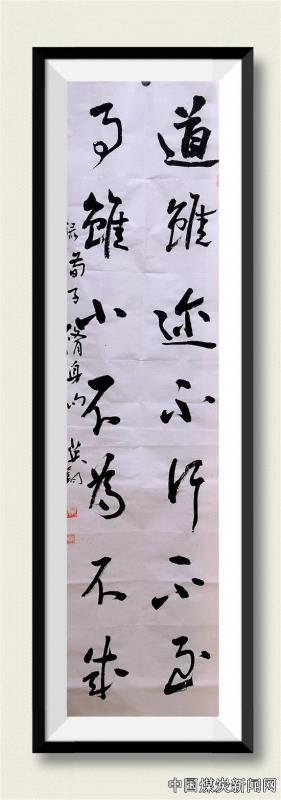 道雖迩不行不至
事雖小不為不成
录荀子脩身句
中国煤炭新闻网